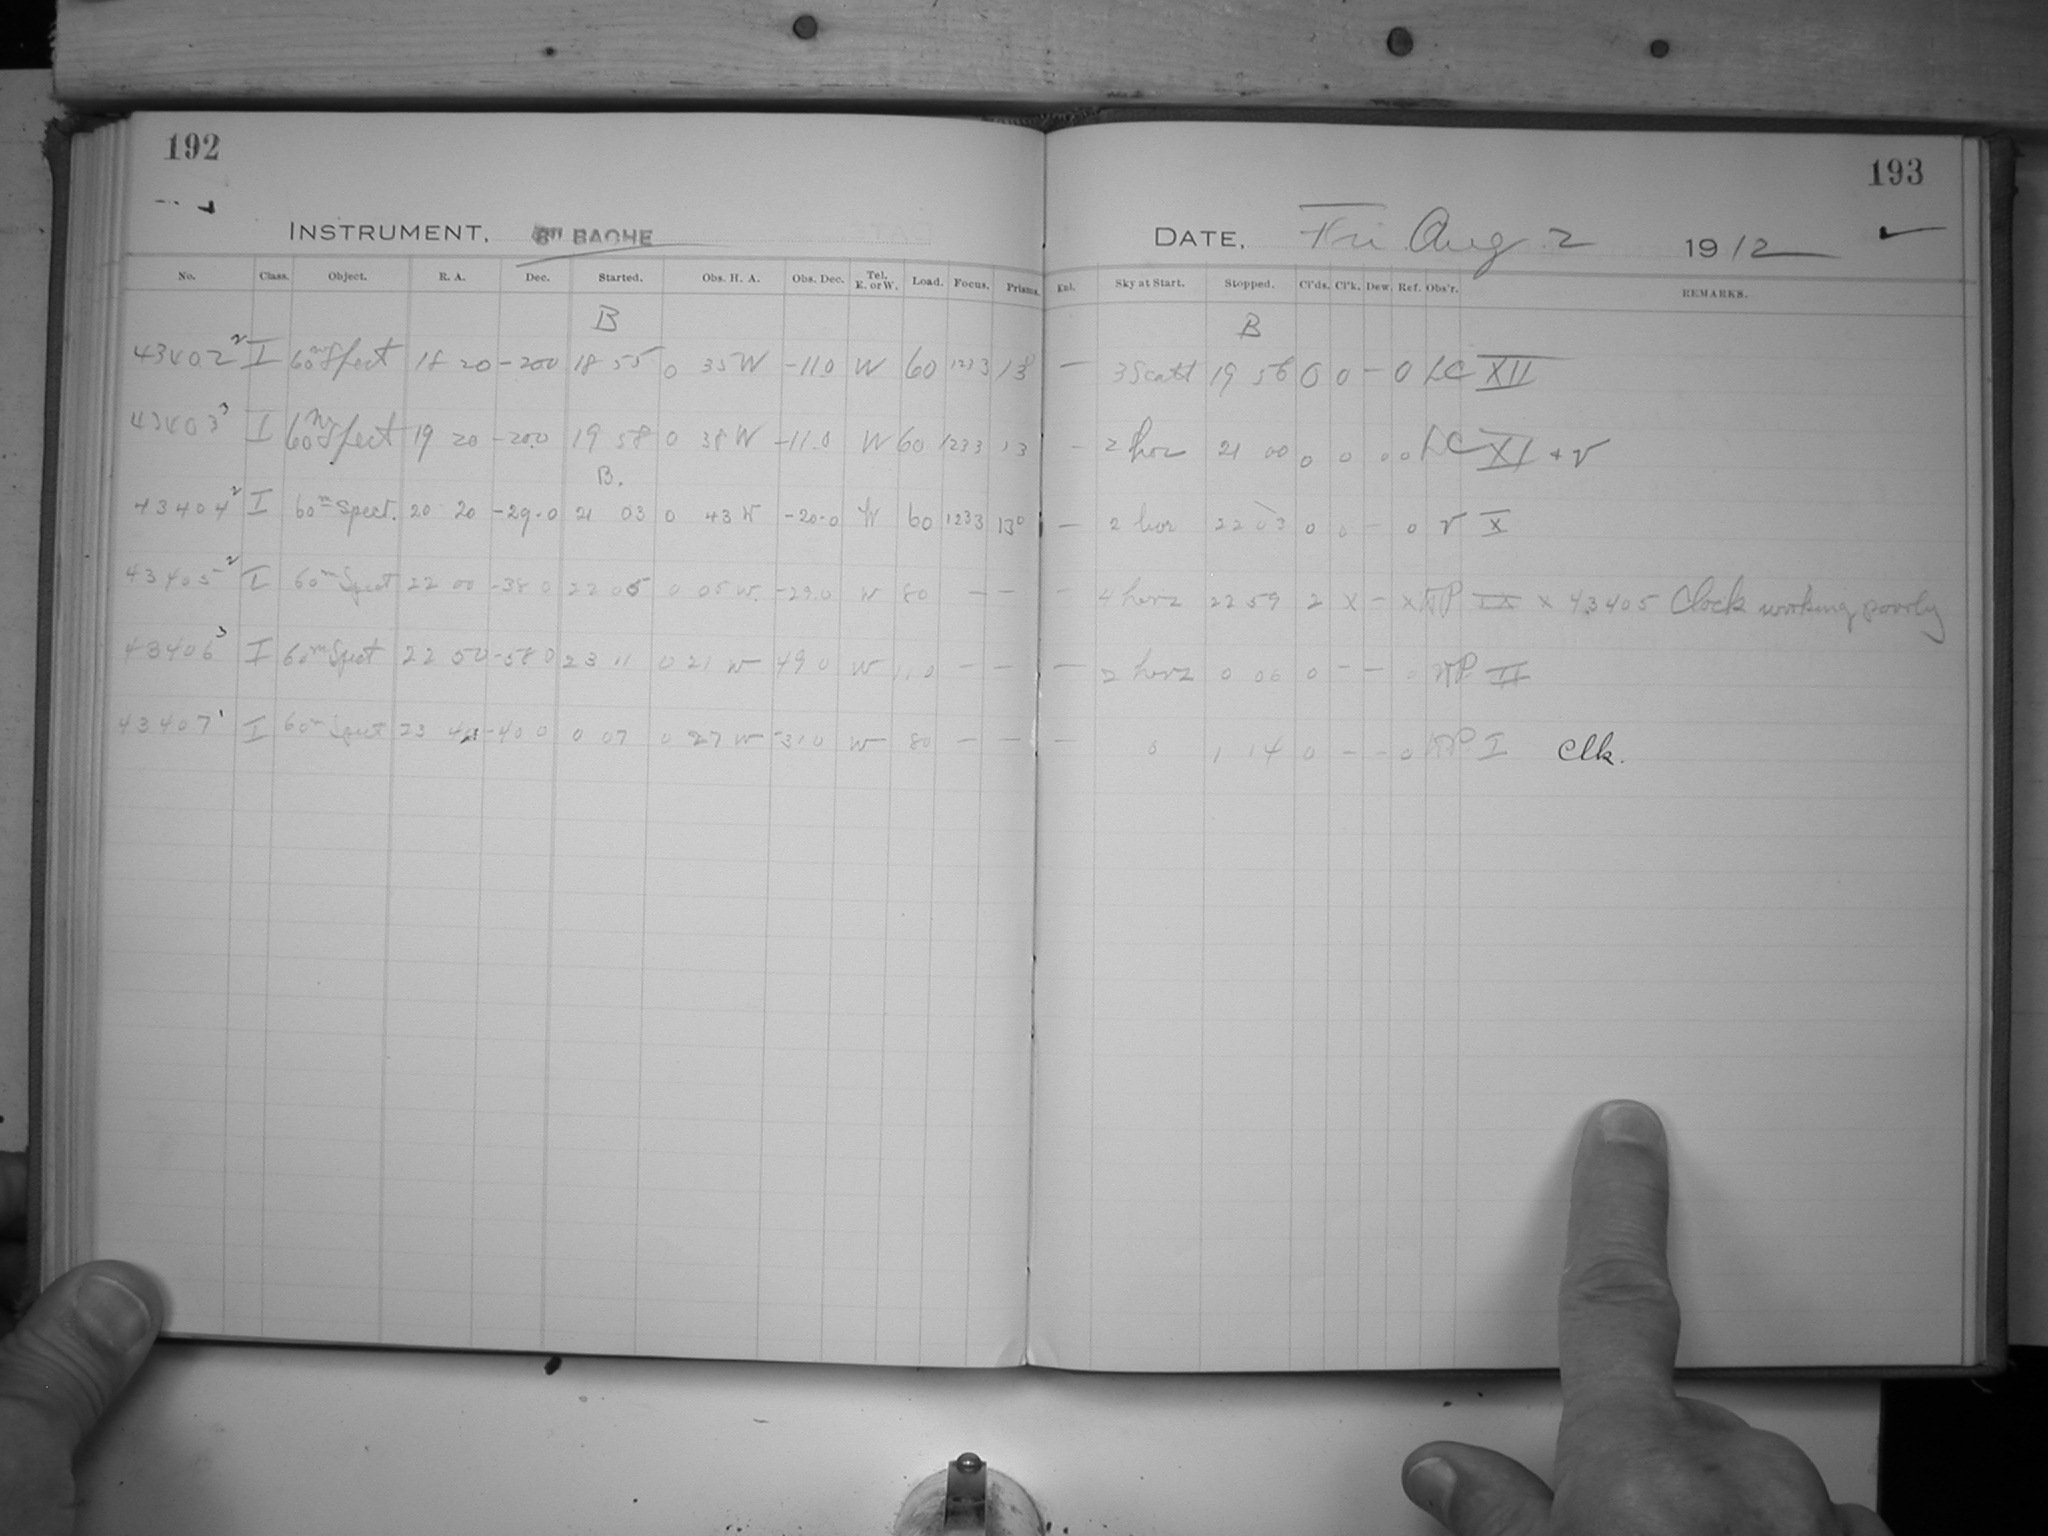 192
INSTRUMENT, 8" BACHE
No. Class. Object. R. A. Dec. Started. Obs. H. A. Obs. Dec. Tel. E. or W. Load. Focus. Prisms.
B
43402 2 I 60m Spect 18 20 -20 0 18 55 0 35 W -11.0 W 60 1233 13°
43403 3 I 60m Spect 19 20 -20 0 19 58 0 38 W -11.0 W 60 1233 13
B.
43404 2 I 60m Spect. 20 20 -29.0 21 03 0 43 W -20.0 W 60 1233 13°
43405 2 I 60m Spect 22 00 -38 0 22 05 0 05 W. -29.0 W 80 — —
43406 3 I 60m Spect 22 50 -58 0 23 11 0 21 W 49 0 W — —
43407 1 I 60m Spect 23 -40 0 0 07 0 27 W -31 0 W 80 — —
193
DATE, Fri Aug 2 1912
Enl. Sky at Start. Stopped. Cl'ds. Cl'k. Dew. Ref. Obs'r. REMARKS.
B
— 3 Scatt 19 56 0 0 — 0 LC XII
- 2 hor 21 00 0 0 0 0 LC XI + V
— 2 hor 22 03 0 0 - 0 V X
- 4 horz 22 59 2 x - x IX x 43405 Clock working poorly
— 2 horz 0 06 0 - — 0 II
— 0 1 14 0 - - 0 I Clk.